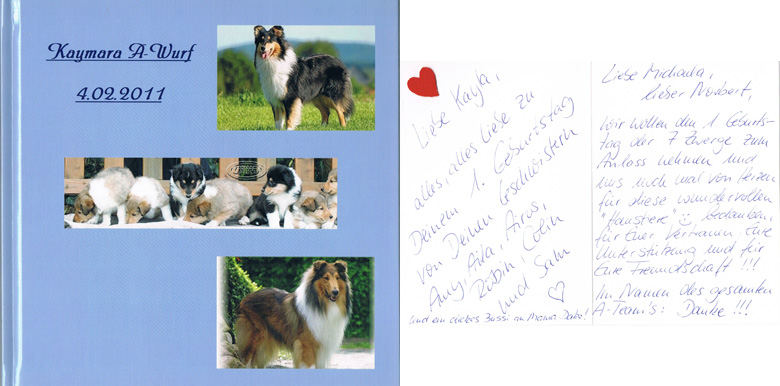 Kaymara A-Wurf
4.02.2011
Liebe Kayla,
alles, alles Liebe zu
Deinem 1. Geburtstag
von Deinen Geschwistern
Amy, Aila, Airos,
Robin, Colin
und Sam
und ein dickes Bussi an Mama
Liebe Michaela,
lieber Norbert,
wir wollen den 1. Geburts-
tag der 7 Zwerge zum
Anlass nehmen und
uns noch mal von Herzen
für diese wundervollen
"Haustiere" bedanken,
für Euer Vertrauen, Eure
Unterstützung und für
Eure Freundschaft !!!
Im Namen des gesamten
A-Team's: Danke !!!